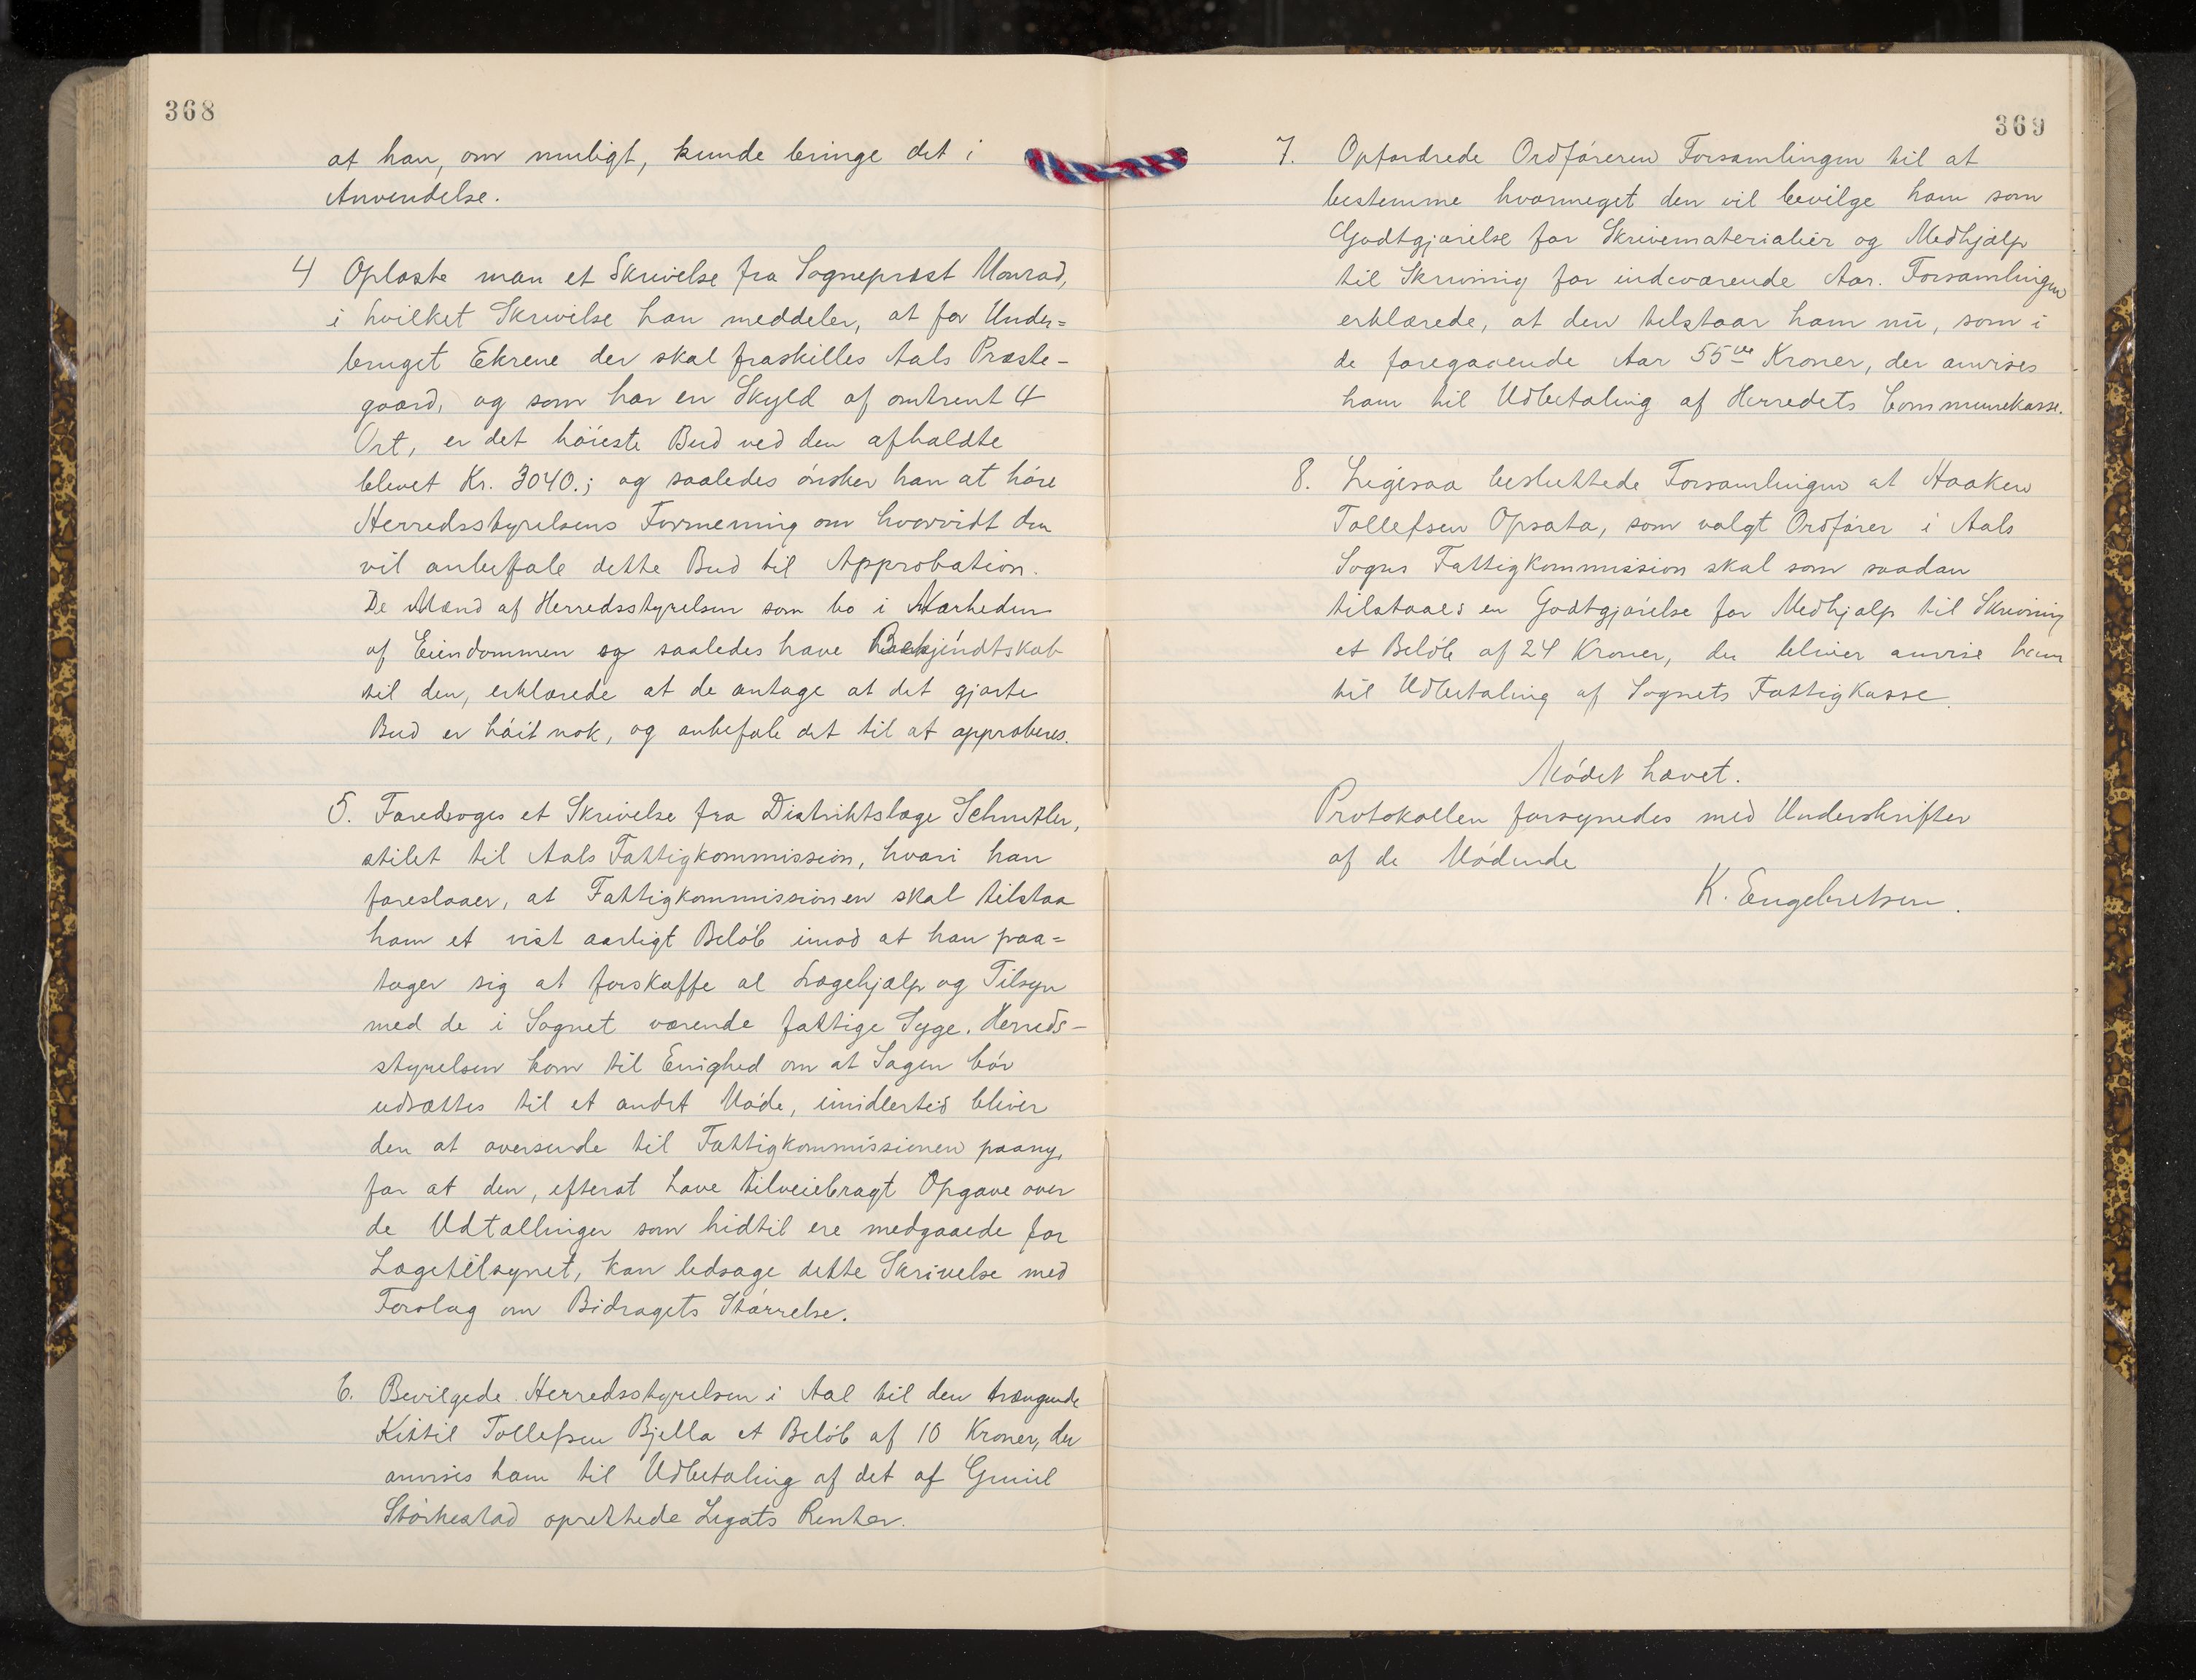 368
at han, om muligt, kunde bringe det i
Anvendelse.
4 Oplæste man et Skrivelse fra Sognepræst Monrad,
i hvilket Skrivelse han meddeler, at for Under=
bruget Ekrene der skal fraskilles Aals Præste-
gaard, og som har en Skyld af omtrent 4
Ort, er det höieste Bud ved den afholdte
blevet Kr. 3040.; og saaledes önsker han at höre
Herredsstyrelsens Formening om hvorvidt den
vil anbefale dette Bud til Approbation.
De Mænd af Herredsstyrelsen som bo i Nærheden
af Eiendommen og saaledes have Bekjendtskab
til den, erklærede at de antage at det gjorte
Bud er höit nok, og anbefale det til at approberes.
5. Foredroges et Skrivelse fra Distriktslæge Schnitler,
stilet til Aals Fattigkommission, hvori han
foreslaaer, at Fattigkommissionen skal tilstaa
ham et vist aarligt Belöb imod at han paa=
tager sig at forskaffe al Lægehjælp og Tilsyn
med de i Sognet værende fattige Syge. Herreds-
styrelsen kom til Enighed om at Sagen bör
udsættes til et andet Möde, imidlertid bliver
den at oversende til Fattigkommissionen paany,
for at den, efterat have tilveiebragt Opgave over
de Udtællinger som hidtil ere medgaaede for
Lægetilsynet, kan ledsage dette Skrivelse med
Forslag om Bidragets Störrelse.
6. Bevilgede Herredsstyrelsen i Aal til den trængende
Kittil Tollefsen Bjella et Belöb af 10 Kroner, der
anvises ham til Udbetaling af det af Guniel
Störkestad oprettede Legats Renter.
369
7. Opfordrede Ordföreren Forsamlingen til at
bestemme hvormeget den vil bevilge ham som
Godtgjörelse for Skrivematerialier og Medhjælp
til Skrivning for indeværende Aar. Forsamlingen
erklærede, at den tilstaar ham nu, som i
de foregaaende Aar 55ve Kroner, der anvises
ham til Udbetaling af Herredets Communekasse.
8. Ligesaa besluttede Forsamlingen at Haaken
Tollefsen Opsata, som valgt Ordförer i Aals
Sogns Fattigkommission skal som saadan
tilstaaes en Godtgjörelse for Medhjælp til Skrivning
et Belöb af 24 Kroner, der bliver anvise ham
til Udbetaling af Sognets Fattigkasse.
Mödet hævet.
Protokollen forsynedes med Underskrifter
af de Mödende
K. Engebretsen.